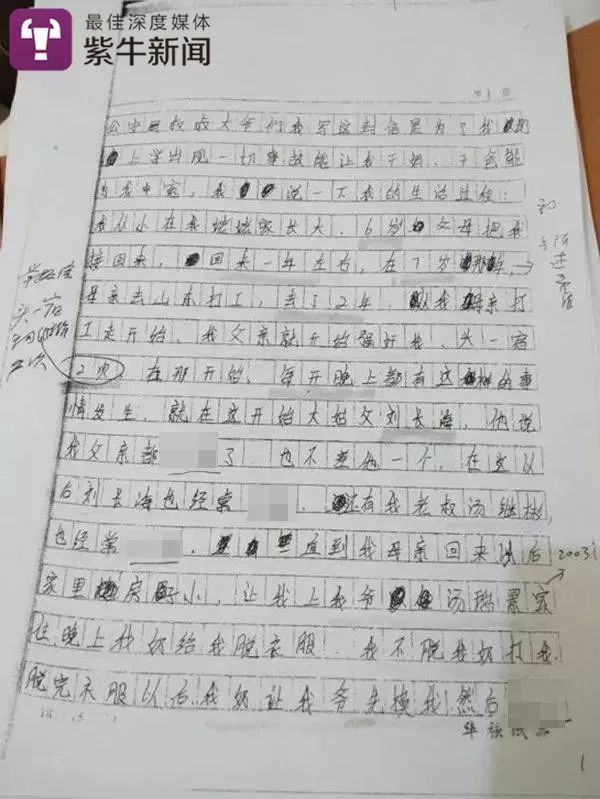 最佳深度媒体
紫牛新闻
第1页
公安局叔叔大爷们我写这封信是为了我
上学出现一切事故能让我干妈、干爸能
为我申冤，我说一下我的生活过程：
我从小在我姥姥家长大，6岁父母把我
接回来，回来一年左右，在7岁那年，
母亲去山东打工，去了2年。从我母亲打
工走开始，我父亲就开始强奸我、头一宿
2次 在那开始，每天晚上都有这样的事
情发生，就在这开始大姑父刘长海，他说
我父亲都 了，也不差他一个，在这以
后刘长海也经常 ，还有我老叔汤继彬，
也经常 ，一直到我母亲回来以后
家里房子小，让我上我爷汤瑞景家
住，晚上我奶给我脱衣服，我不脱我奶打我，
脱完衣服以后我奶让我爷先摸我然后
2003
头一宿
二次
1